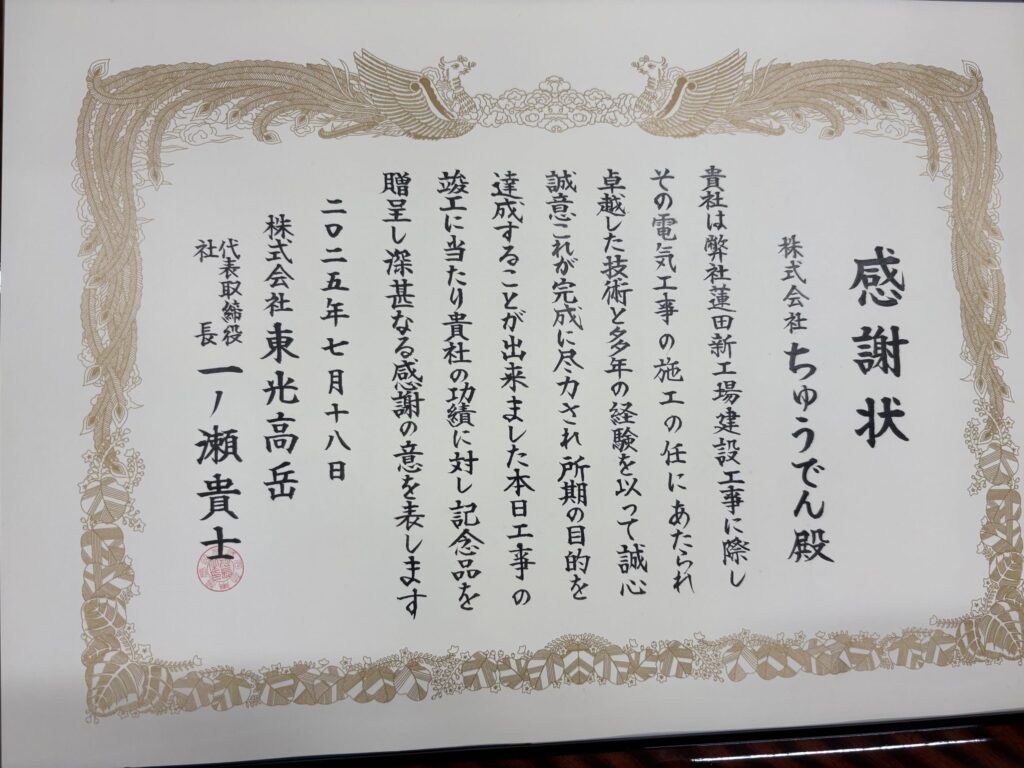 感謝状
株式会社ちゅうでん殿
貴社は弊社蓮田新工場建設工事に際し
その電気工事の施工の任にあたられ
卓越した技術と多年の経験を以って誠心
誠意これが完成に尽力され所期の目的を
達成することが出来ました本日工事の
竣工に当たり貴社の功績に対し記念品を
贈呈し深甚なる感謝の意を表します
二〇二五年七月十八日
株式会社東光高岳
代表取締役
社長
一ノ瀬貴士